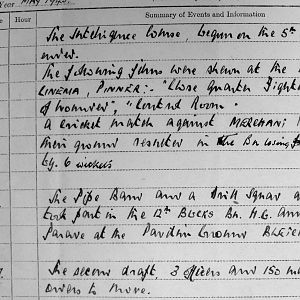 Year MAY 194
Hour
Summary of Events and Information
The Intelligence Course, begun on the 5th
The following films were shewn at the
CINEMA, PINNER:- "Close Quarter Fight
of Wounded", "Control Room".
A cricket match against MERCHANT
their ground resulted in the Bn losing
by 6 wickets
The Pipe Band and a Drill Squad
took part in the 12th BUCKS Bn. H.G. Ann
Parade at the Pavilion Ground BLETCH
The second draft, 3 officers and 150 m
orders to move.